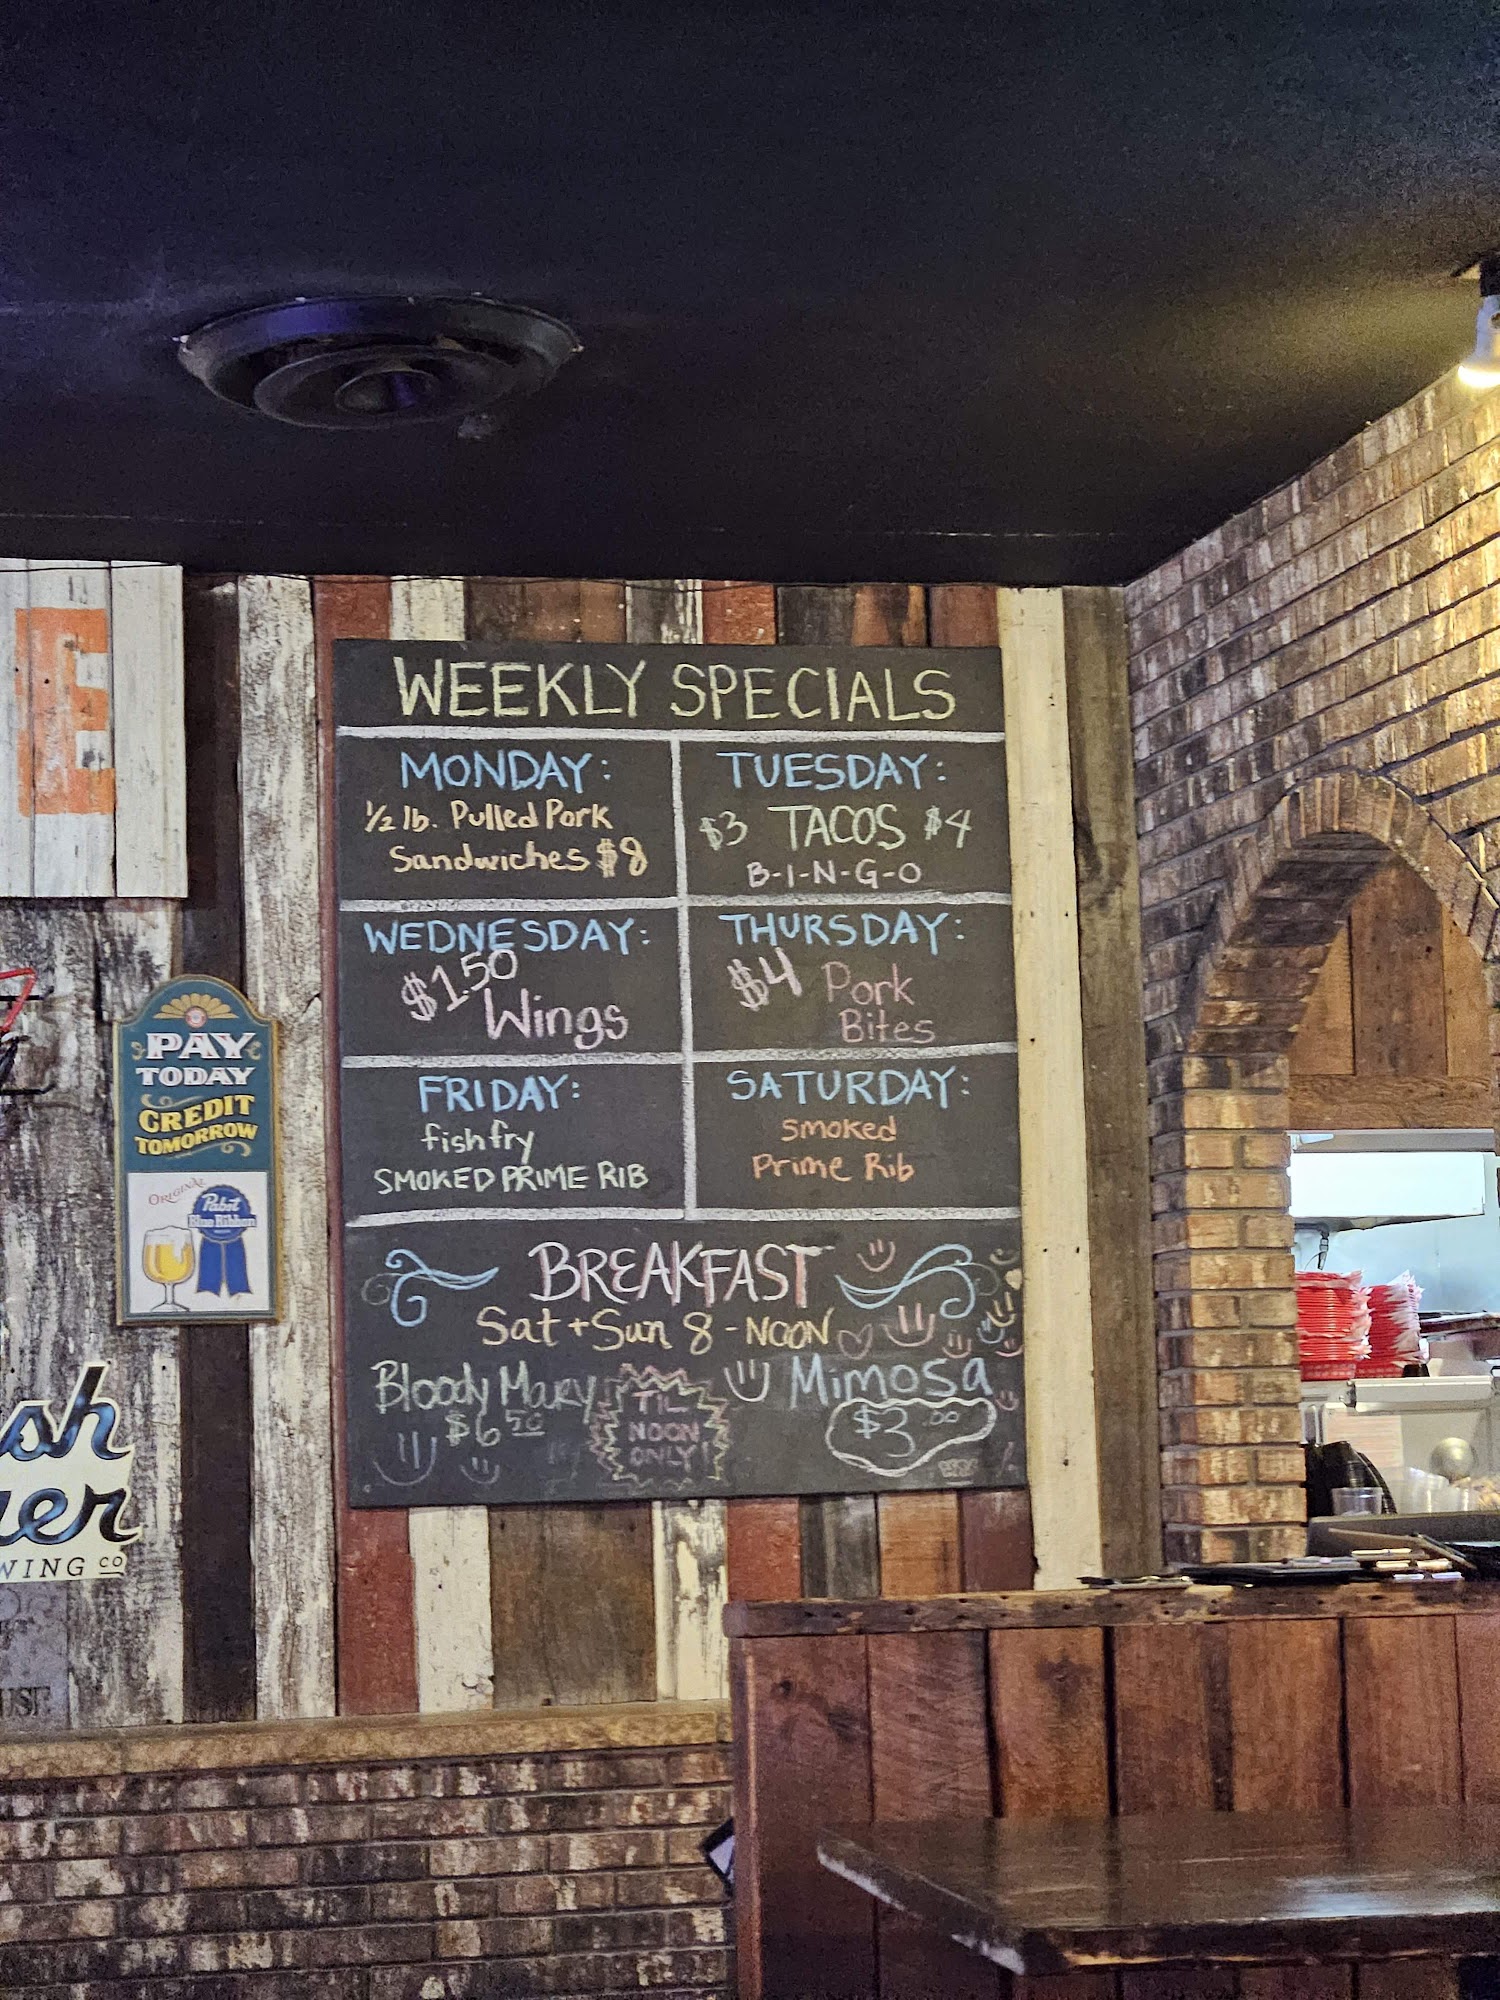 WEEKLY SPECIALS
MONDAY:
1/2 lb. Pulled Pork
Sandwiches $8
TUESDAY:
$3 TACOS $4
B-I-N-G-O
WEDNESDAY:
$1.50
Wings
THURSDAY:
$4 Pork
Bites
FRIDAY:
fish fry
SMOKED PRIME RIB
SATURDAY:
smoked
Prime Rib
BREAKFAST
Sat + Sun 8 - NOON
Bloody Mary
$6 50
'TIL
NOON
ONLY!
Mimosa
$3.00
E
PAY
TODAY
CREDIT
TOMORROW
ORIGINAL
Pabst
Blue Ribbon
sh
er
WING CO
USE